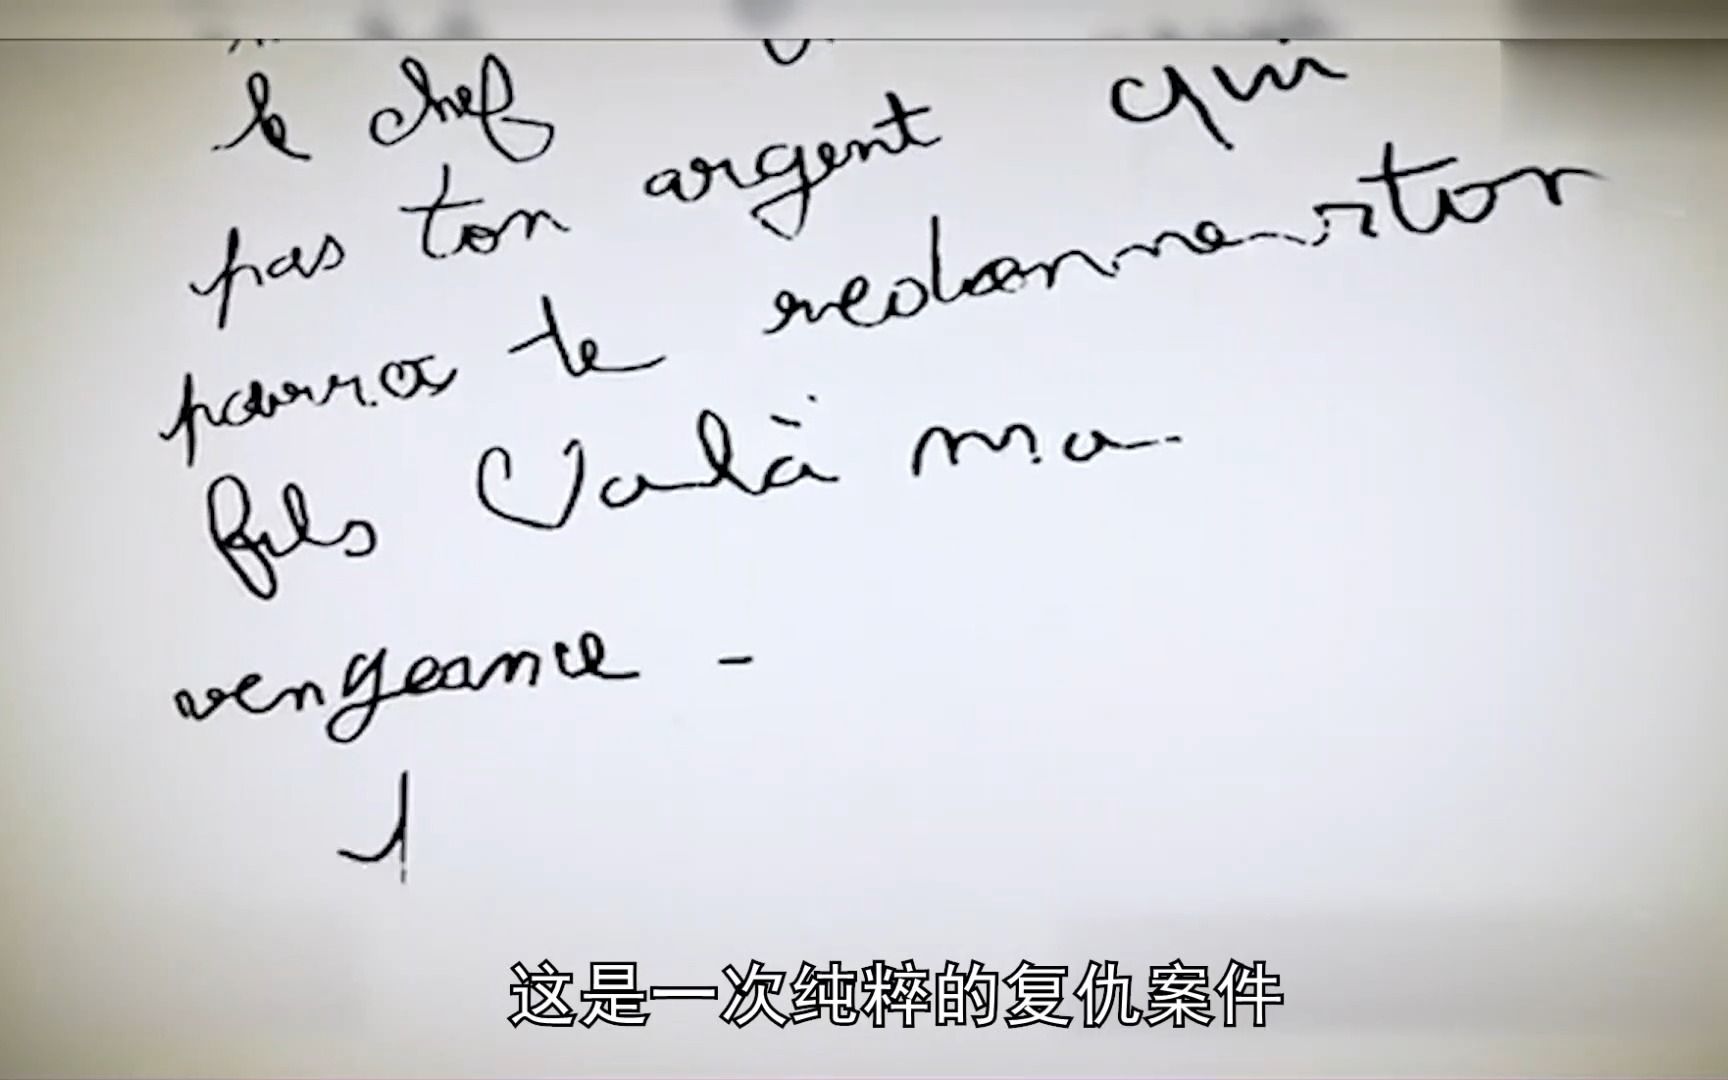 le chef
pas ton argent qui
pourra te redonner ton
fils Voilà ma
vengeance -
这是一次纯粹的复仇案件